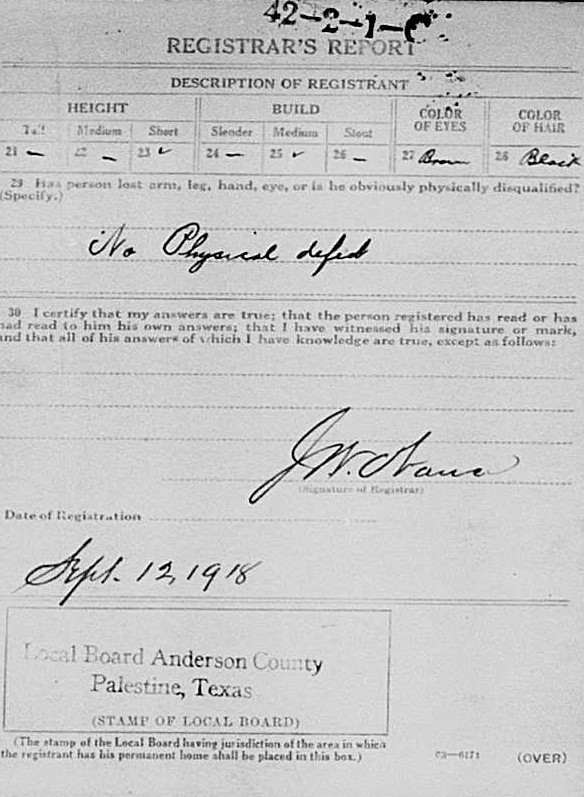 42-2-1-C
REGISTRAR'S REPORT
DESCRIPTION OF REGISTRANT
HEIGHT BUILD COLOR OF EYES COLOR OF HAIR
Tall Medium Short Slender Medium Stout
21 – 22 – 23 ✓ 24 – 25 ✓ 26 – 27 Brown 28 Black
29 Has person lost arm, leg, hand, eye, or is he obviously physically disqualified?
(Specify.)
No Physical defect
30 I certify that my answers are true; that the person registered has read or has
had read to him his own answers; that I have witnessed his signature or mark,
and that all of his answers of which I have knowledge are true, except as follows:
J W.
(Signature of Registrar)
Date of Registration
Sept. 12, 1918
Local Board Anderson County
Palestine, Texas
(STAMP OF LOCAL BOARD)
(The stamp of the Local Board having jurisdiction of the area in which
the registrant has his permanent home shall be placed in this box.)
03—6171 (OVER)